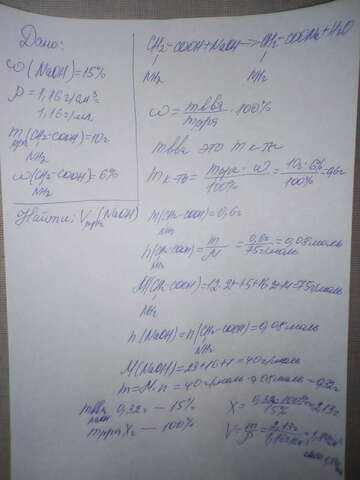 Дано:
ω(NaOH)=15%
ρ=1,16г/см³
1,16г/мл
m(CH₂-COOH)=10г
NH₂
ω(CH₂-COOH)=6%
NH₂
Найти: Vр-ра(NaOH)
CH₂-COOH+NaOH→CH₂-COONa+H₂O
NH₂ NH₂
ω=mв-ва/mр-ра·100%
mв-ва это m к-ты
mк-ты=mр-ра·ω/100%=10г·6%/100%=0,6г
m(CH₂-COOH)=0,6г
NH₂
n(CH₂-COOH)=m/M=0,6г/75г/моль=0,08моль
NH₂
M(CH₂-COOH)=12·2+5+16·2+14=75г/моль
NH₂
n(NaOH)=n(CH₂-COOH)=0,08моль
NH₂
M(NaOH)=23+16+1=40г/моль
m=M·n=40г/моль·0,08моль=0,32г
mв-ва 0,32г — 15%
NaOH
mр-ра Xг — 100%
X=0,32г·100%/15%=2,13г
V=m/ρ=2,13г/1,16г/см³=1,84см³